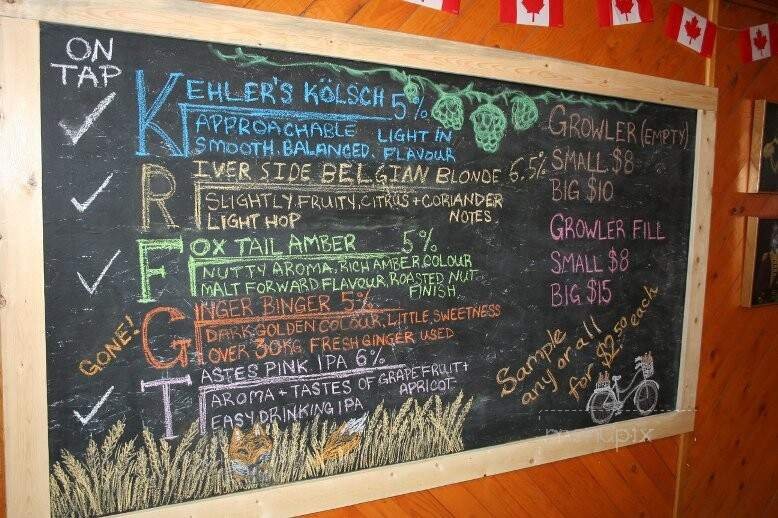 ON
TAP
KEHLER'S KÖLSCH 5%
APPROACHABLE LIGHT IN
SMOOTH. BALANCED. FLAVOUR
RIVER SIDE BELGIAN BLONDE 6.5%
SLIGHTLY FRUITY, CITRUS + CORIANDER
LIGHT HOP NOTES
FOX TAIL AMBER 5%
NUTTY AROMA, RICH AMBER COLOUR
MALT FORWARD FLAVOUR, ROASTED NUT
FINISH.
GONE!
GINGER BINGER 5%
DARK GOLDEN COLOUR, LITTLE SWEETNESS
OVER 30KG FRESH GINGER USED
TASTES PINK IPA 6%
AROMA + TASTES OF GRAPEFRUIT +
APRICOT
EASY DRINKING IPA
GROWLER (EMPTY)
SMALL $8
BIG $10
GROWLER FILL
SMALL $8
BIG $15
Sample
any or all
for $2.50 each
menupix